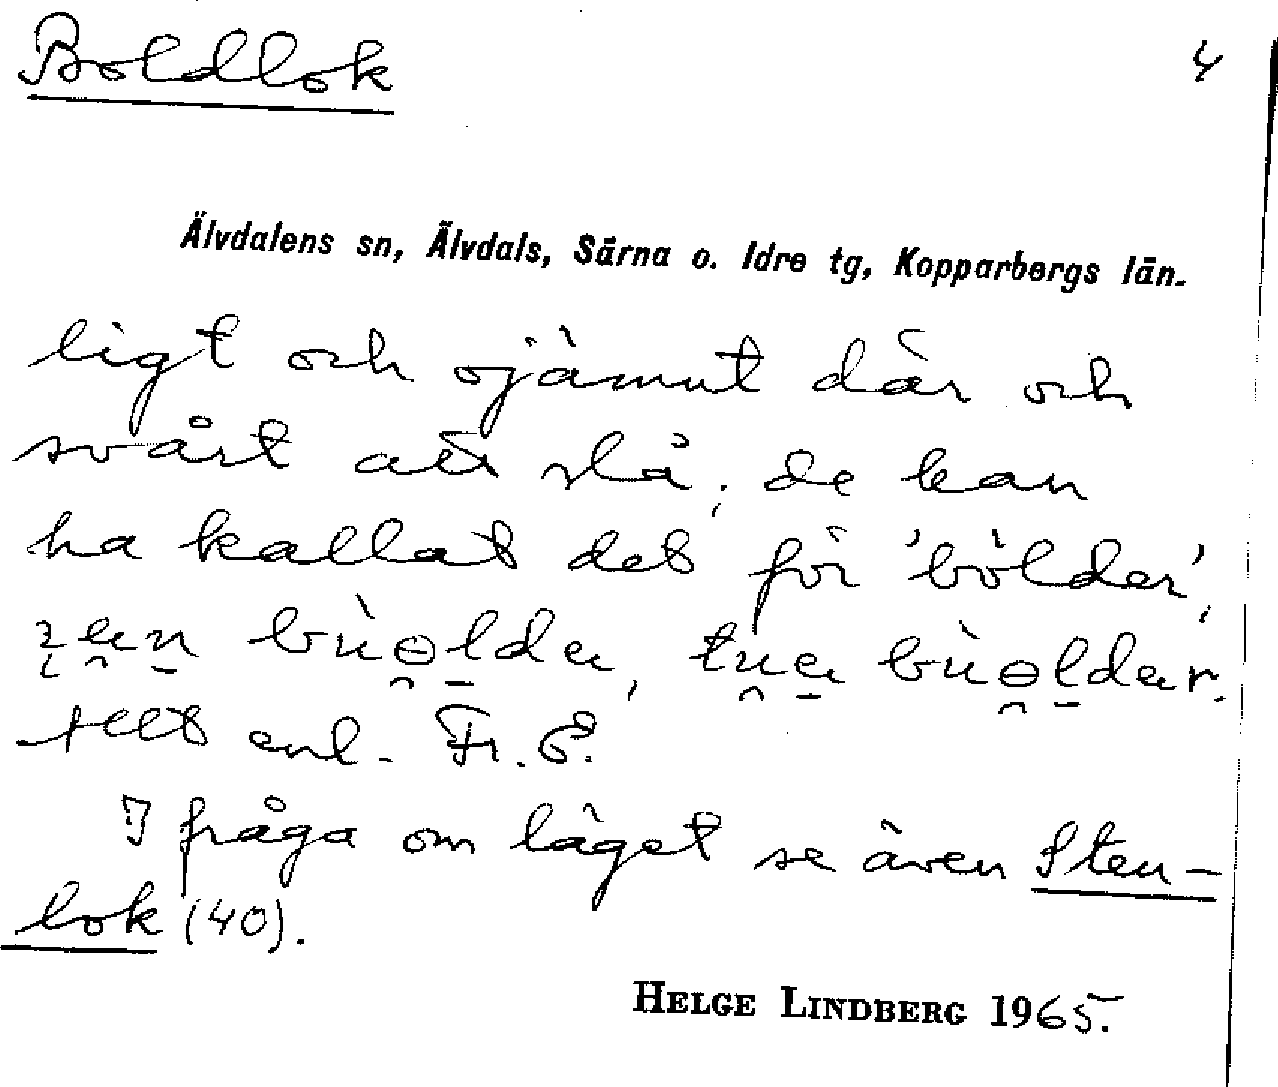 Boldlok
4
Älvdalens sn, Älvdals, Särna o. Idre tg, Kopparbergs län.
ligt och ojämnt där och
svårt att slå; de kan
ha kallat det för 'bölder',
bùɵ̯lda, bùɵ̯ldar.
allt enl. Fr. E.
I fråga om läget se även Sten-
lok (40).
HELGE LINDBERG 1965.